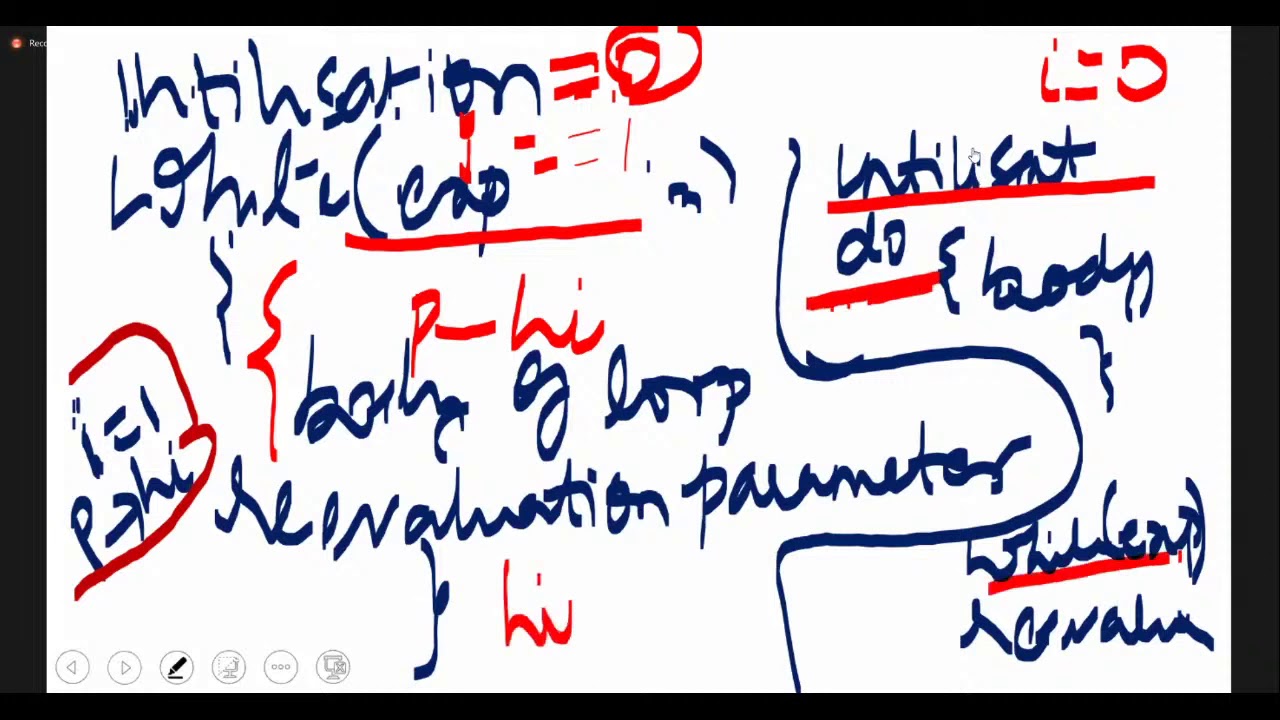 Reco
Intilisation = 0
i = 0
While (exp i == 1 )
{
{
p - hi
body of loop
i = 1
p > hi
reevaluation parameter
}
hi
intilisat
do { body
}
while (exp)
reevalu